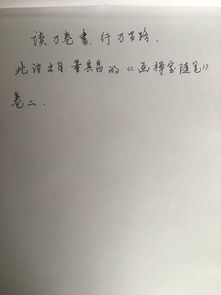 读万卷书,行万里路,
此语出自董其昌的《画禅室随笔》
卷二.